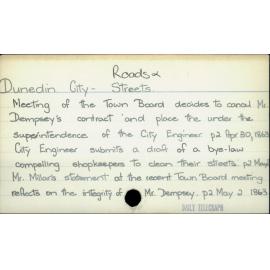 Roads &
Dunedin City - Streets.
Meeting of the Town Board decides to cancel Mr.
Dempsey's contract and place the under the
superintendence of the City Engineer p2 Apr 30, 1863
City Engineer submits a draft of a bye-law
compelling shopkeepers to clean their streets. p2 May
Mr. Millar's statement at the recent Town Board meeting
reflects on the integrity of Mr. Dempsey. p2 May 2. 1863
DAILY TELEGRAPH